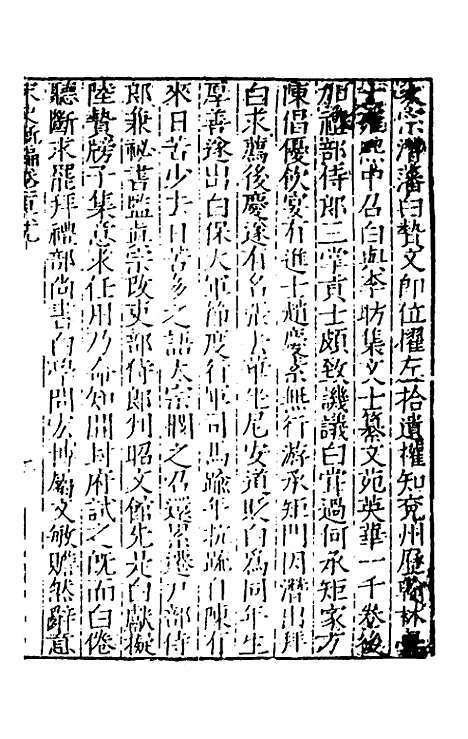 太宗潛藩白贄文即位擢左拾遺權知兗州歷翰林學
士雍熙中召白與李昉集文士纂文苑英華一千卷後
加禮部侍郎三掌貢士頗致譏議白嘗過何承矩家方
陳倡優飲宴有進士趙慶素無行游承矩門因潛出拜
白求薦後慶遂有名張去華坐尼安道貶白為同年生
厚善遂出白保大軍節度行軍司馬踰年抗疏自陳有
來日苦少去日苦多之語太宗閔之召還累遷戶部侍
郎兼祕書監真宗改吏部侍郎判昭文館先是白獻擬
陸贄牓子集意求任用乃命知開封府試之既而白倦
聽斷求罷拜禮部尚書白學問宏博屬文敏贍然辭意
宋史新編卷百